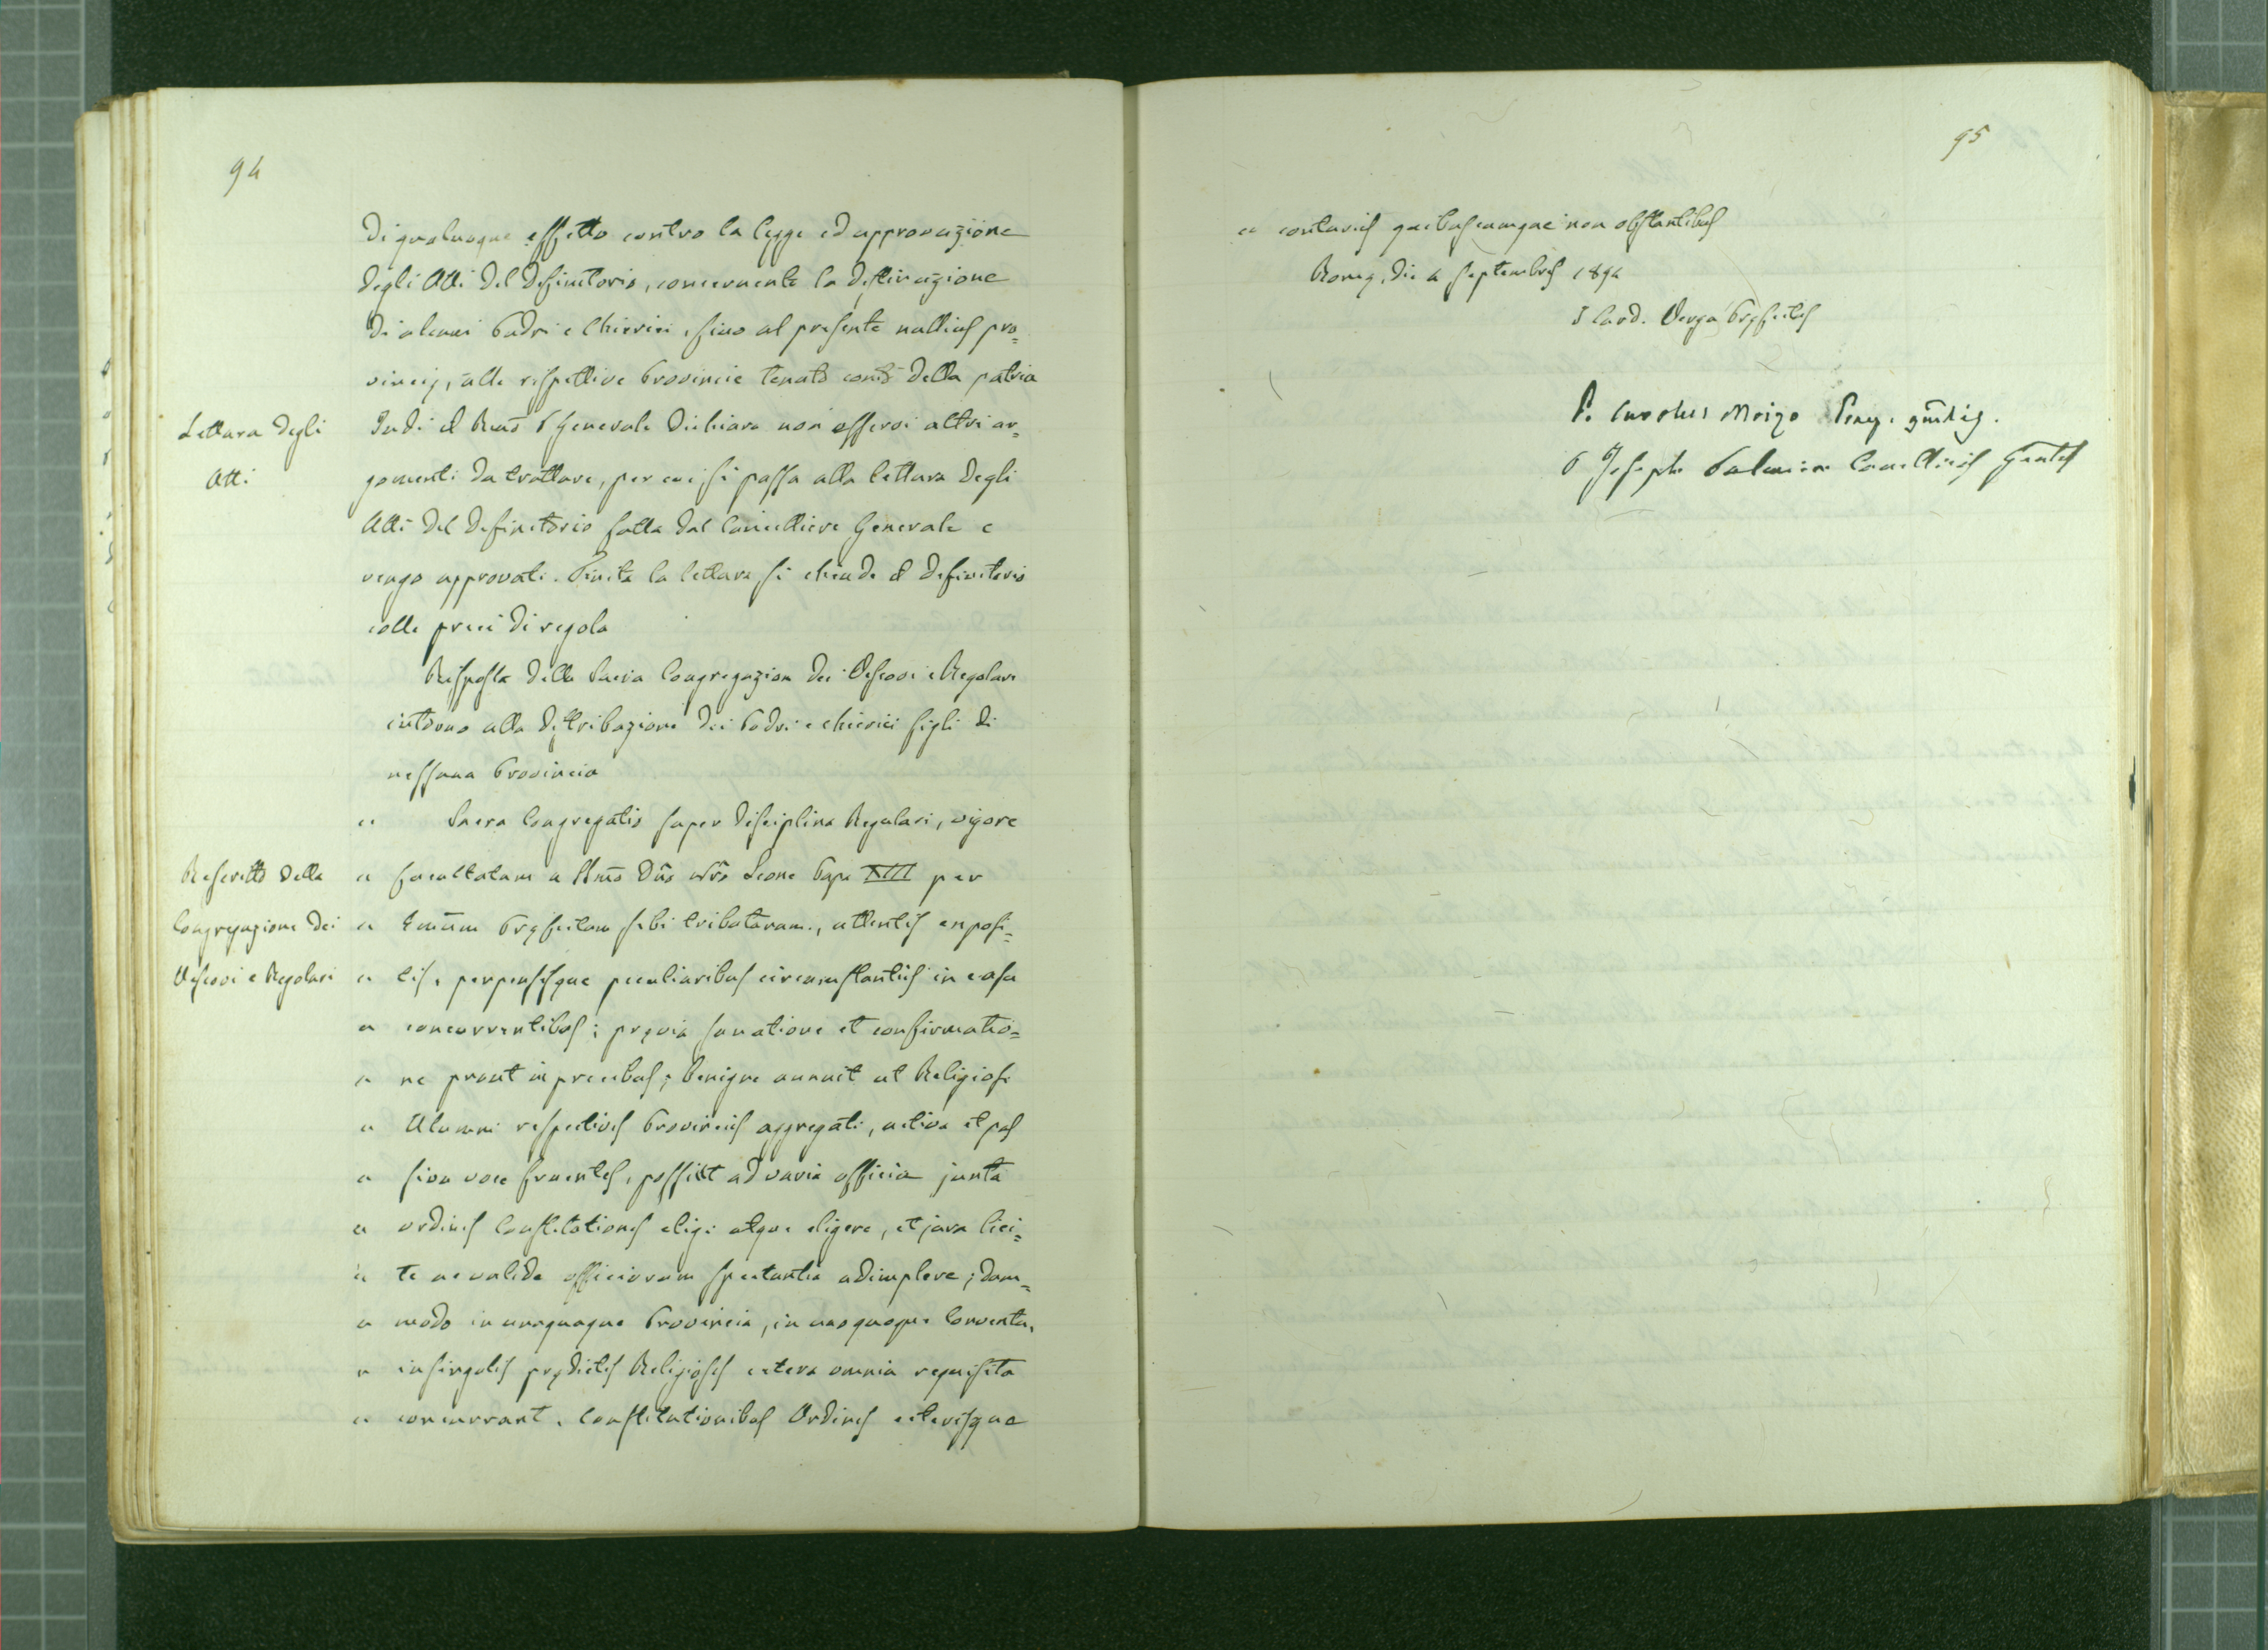 94
di qualunque effetto contro la legge ed approvazione
degli Atti del Definitorio, concernente la destinazione
di alcuni Padri e Chierici, sino al presente nullius pro=
vincię, alle rispettive Provincie tenuto conto della patria
Lettura degli
Atti
Indi il Rm̃o P Generale dichiara non esservi altri ar=
gomenti da trattare, per cui si passa alla lettura degli
Atti del Definitorio fatta dal Cancelliere Generale e
vengo approvati. Finita la lettura si chiude il definitorio
colle preci di regola
Risposta della Sacra Congregazion dei Vescovi e Regolari
intorno alla distribuzione dei Padri e chierici figli di
nessuna Provincia
" Sacra Congregatio super disciplina Regulari, vigore
Rescritto della
Congregazione dei
Vescovi e Regolari
" facultatum a SSm̃o Dño nr̃o Leone Papa XIII per
" Em̃um Pręfectum sibi tributarum, attentis exposi=
" tis, perpensisque peculiaribus circumstantiis in casu
" concurrentibus; pręvia sanatione et confirmatio=
" ne prout in precibus; benigne annuit ut Religiosi
" Alumni respectivis Provinciis aggregati, activa et pas
" siva voce fruentes, possint ad varia officia juxta
" ordinis Constitutiones eligi atque eligere, et jura lici=
" te ac valide officiorum spectantia adimplere; dum=
" modo in unaquaque Provincia, in unoquoque Conventu,
" in singulis prędictis Religiosis cetera omnia requisita
" concurrant. Constitutionibus Ordinis ceterisque
95
" contrariis quibuscumque non obstantibus
Romę, die 4 septembris 1894
I Card. Verga Pręfectus
P. Carolus Moizo
P Joseph Palmieri Cancellarius Gñlis